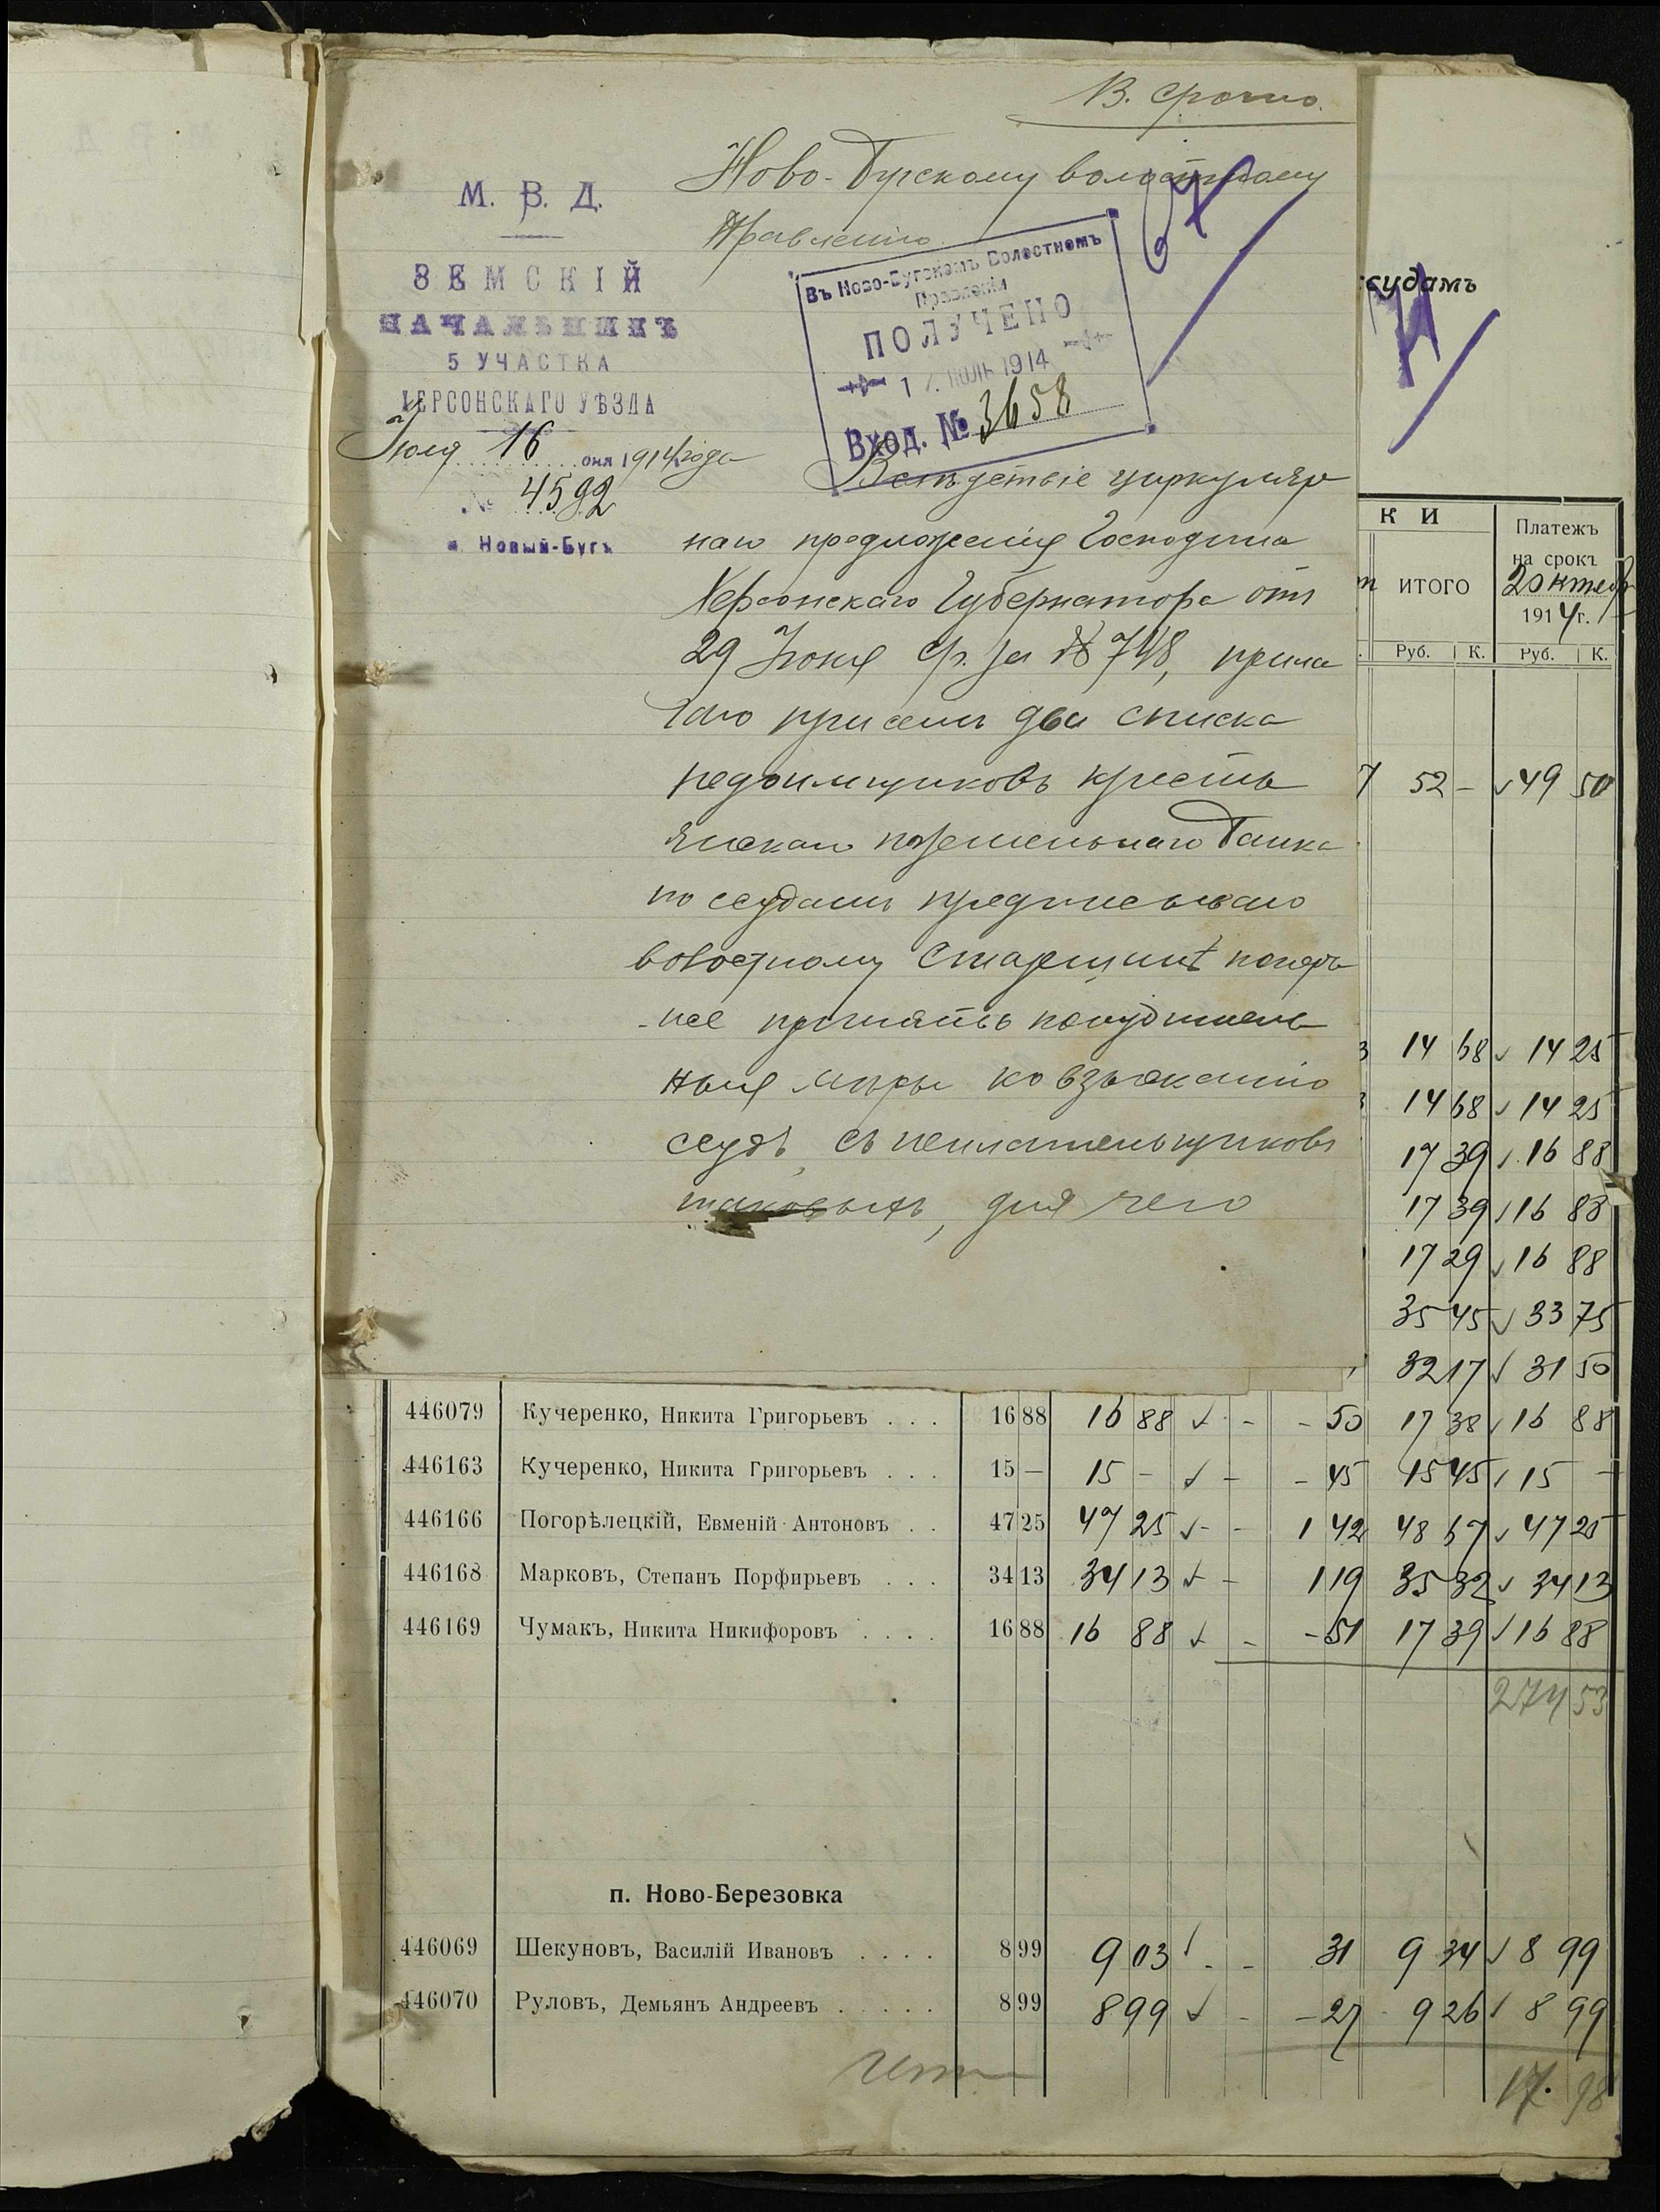 В. Срочно.
Ново-Бугскому волостному
Правлению
М. В. Д.
ЗЕМСКІЙ
НАЧАЛЬНИКЪ
5 УЧАСТКА
ХЕРСОНСКАГО УѢЗДА
Іюля 16 дня 1914 года
№ 4592
м. Новый-Бугъ
Въ Ново-Бугскомъ Волостномъ
Правленіи
ПОЛУЧЕНО
17 ІЮЛЬ 1914
Вход. № 3658
67
Вслѣдствіе циркуляр
наго предложенія Господина
Херсонскаго Губернатора отъ
29 Іюня с/г. за № 748, прила
гаю при семъ два списка
недоимщиковъ кресть
янскаго поземельнаго Банка
по ссудамъ предписываю
волостному Старшинѣ
принять понудитель
ныя мѣры ко взысканію
ссудъ съ неплательщиковъ
таковыхъ, для чего
ссудамъ
К И
Платежъ
на срокъ
ИТОГО
2 октябр
1914 г.
Руб. К. Руб. К.
7 52 — 49 50
14 68 14 25
14 68 14 25
17 39 16 88
17 39 16 88
17 29 16 88
35 45 33 75
32 17 31 50
446079 Кучеренко, Никита Григорьевъ . . . 16 88 16 88 - - 50 17 38 16 88
446163 Кучеренко, Никита Григорьевъ . . . 15 — 15 - - - 45 15 45 15 -
446166 Погорѣлецкій, Евменій Антоновъ . . 47 25 47 25 - - 1 42 48 67 47 25
446168 Марковъ, Степанъ Порфирьевъ . . . 34 13 34 13 - 1 19 35 32 34 13
446169 Чумакъ, Никита Никифоровъ . . . . 16 88 16 88 - - 51 17 39 16 88
274 53
п. Ново-Березовка
446069 Шекуновъ, Василій Ивановъ . . . . 8 99 9 03 - - 31 9 34 8 99
446070 Руловъ, Демьянъ Андреевъ . . . . . 8 99 8 99 - - 27 9 26 8 99
17. 98